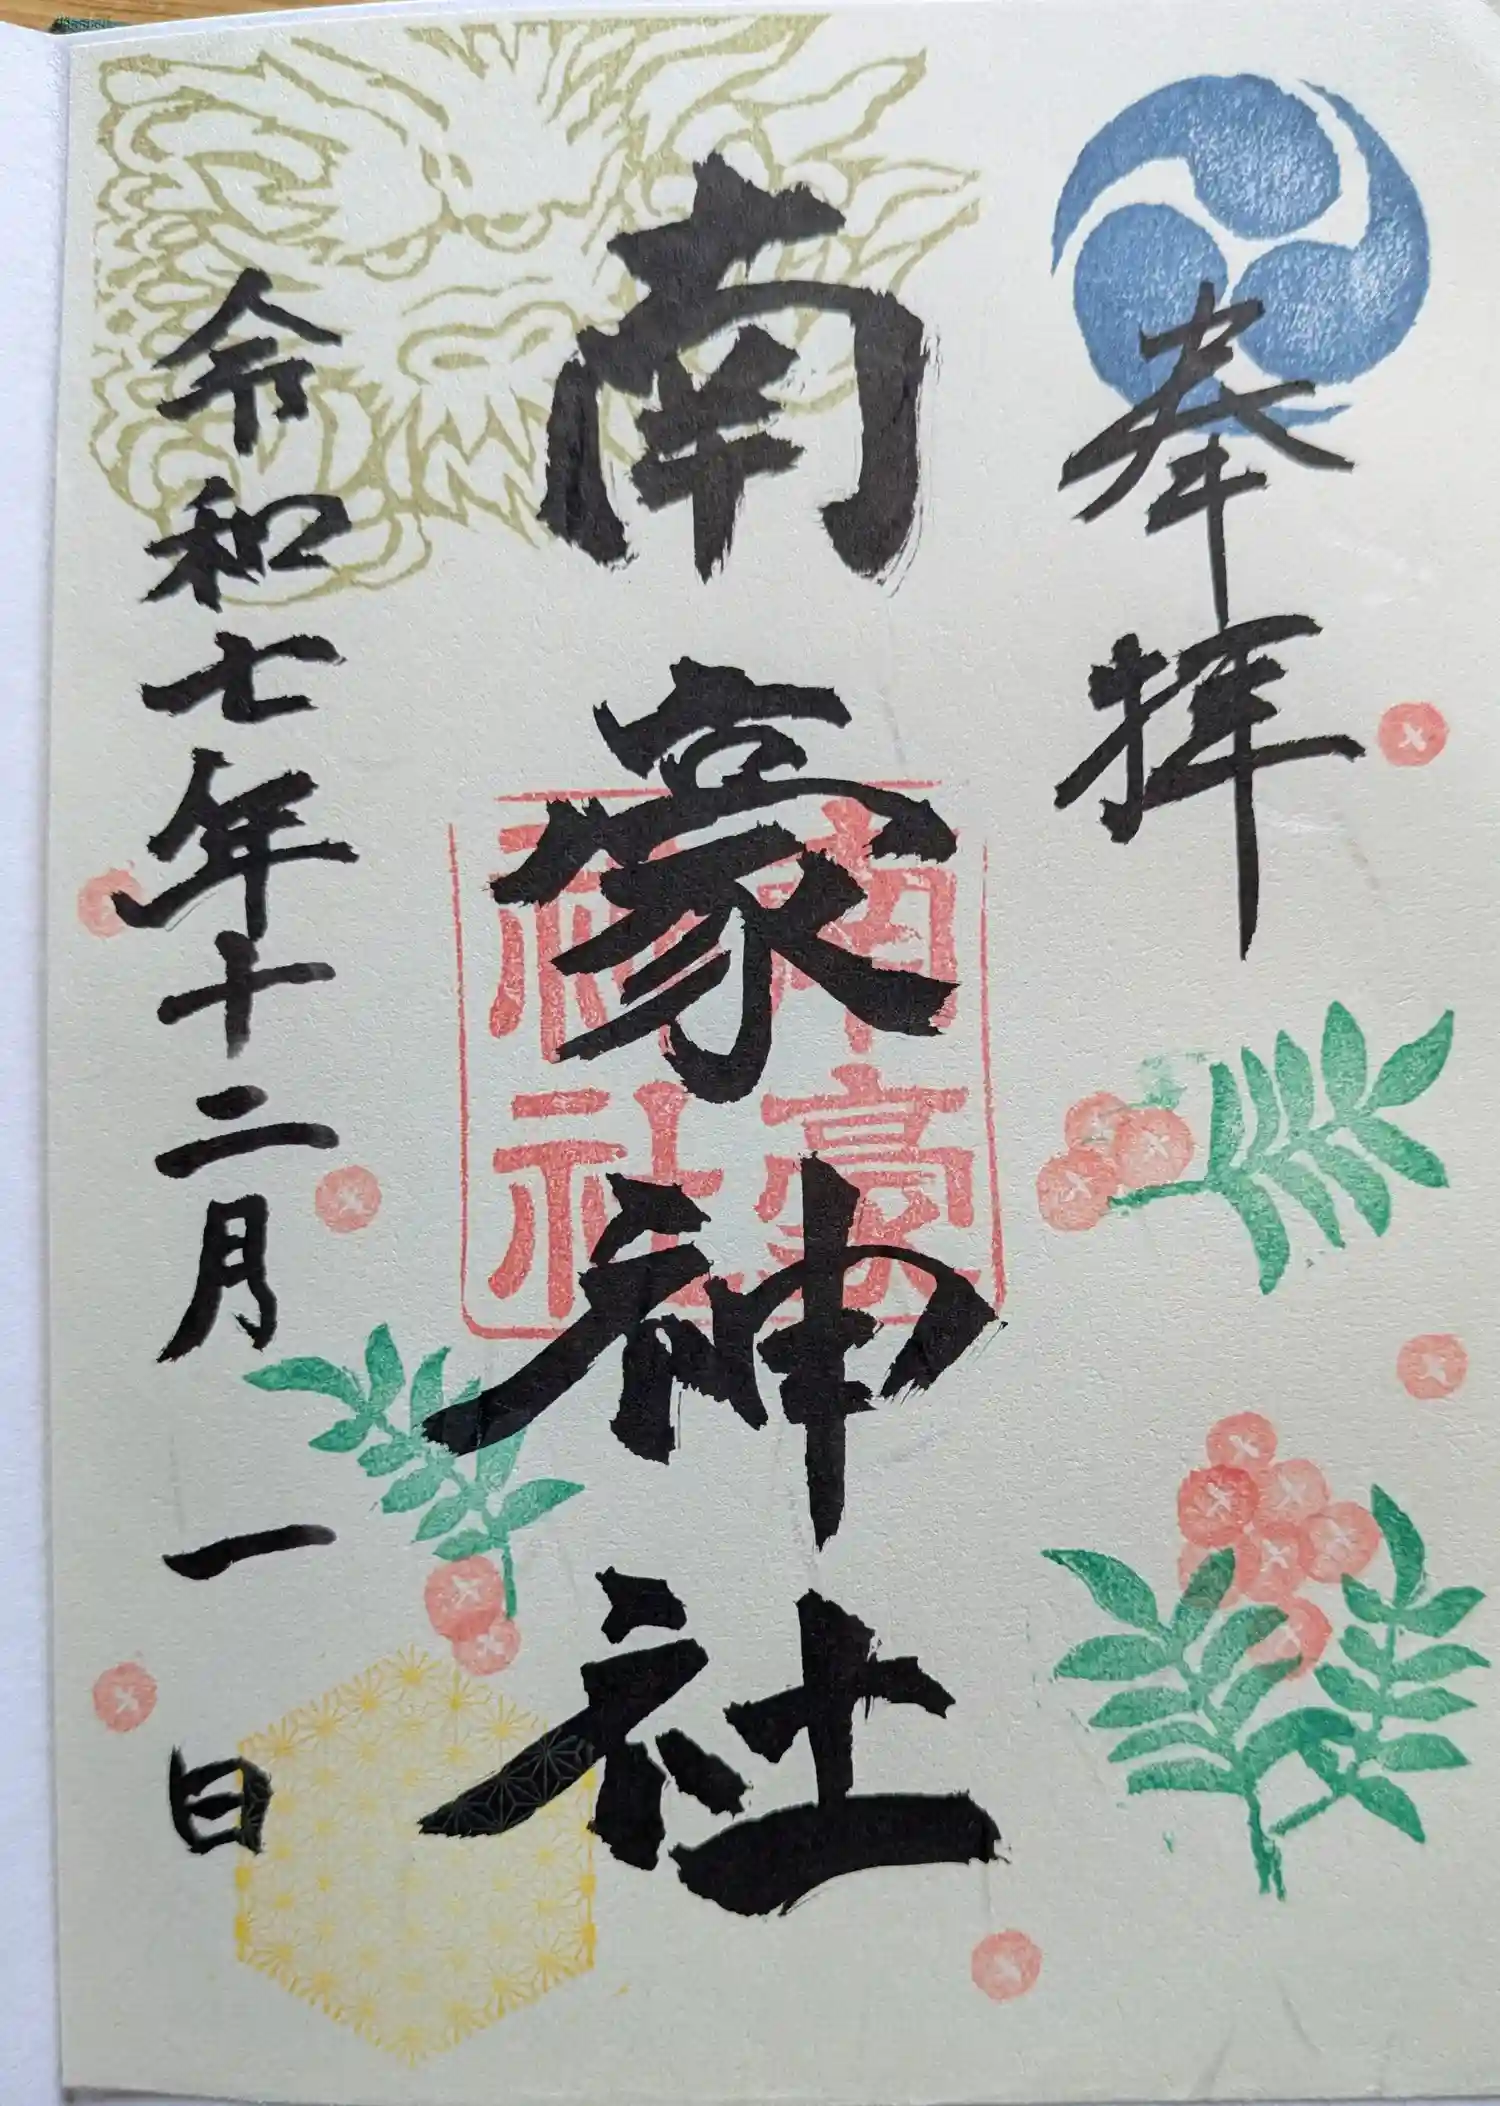 奉拝
南豪神社
南豪神社
令和七年十二月一日